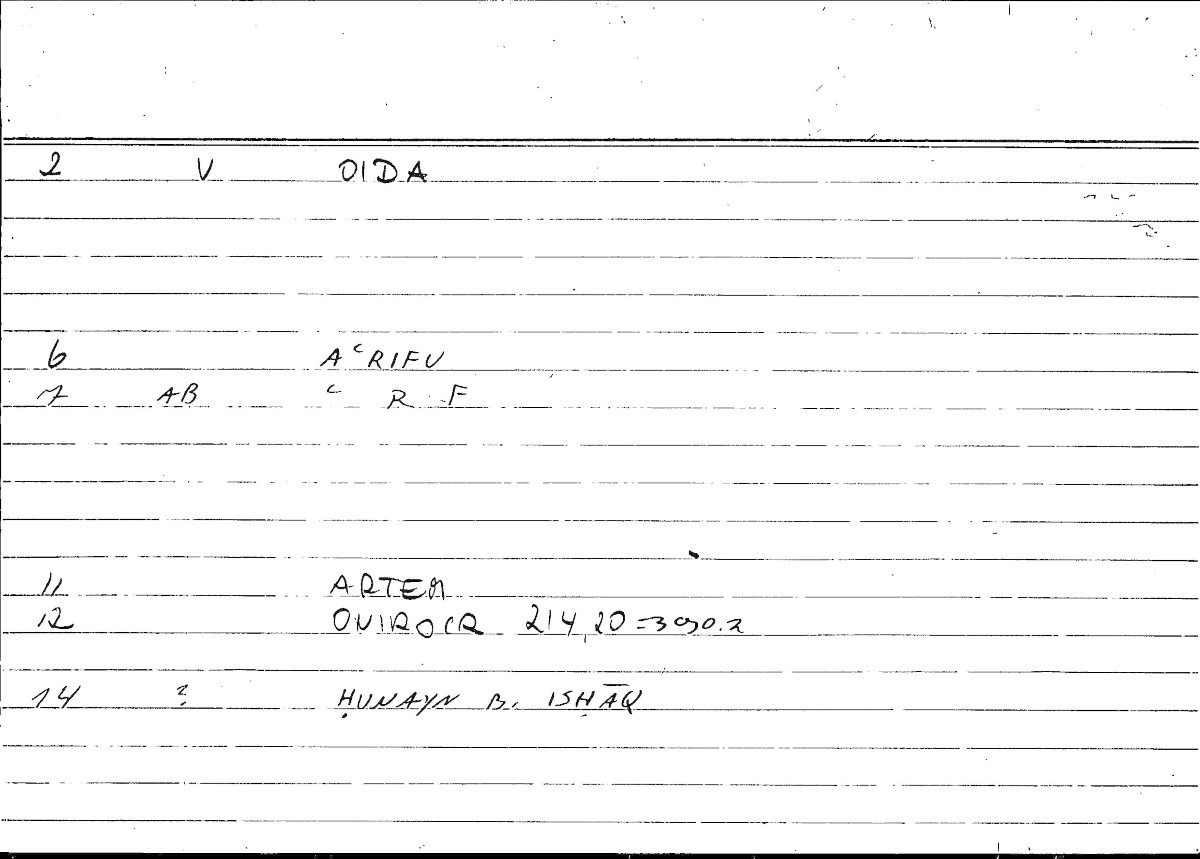 2 V OIDA
6 AʿRIFU
7 AB ʿ R F
11 ARTEM
12 ONIROCR 214,20=390.2
14 ? ḤUNAYN B. ISḤĀQ